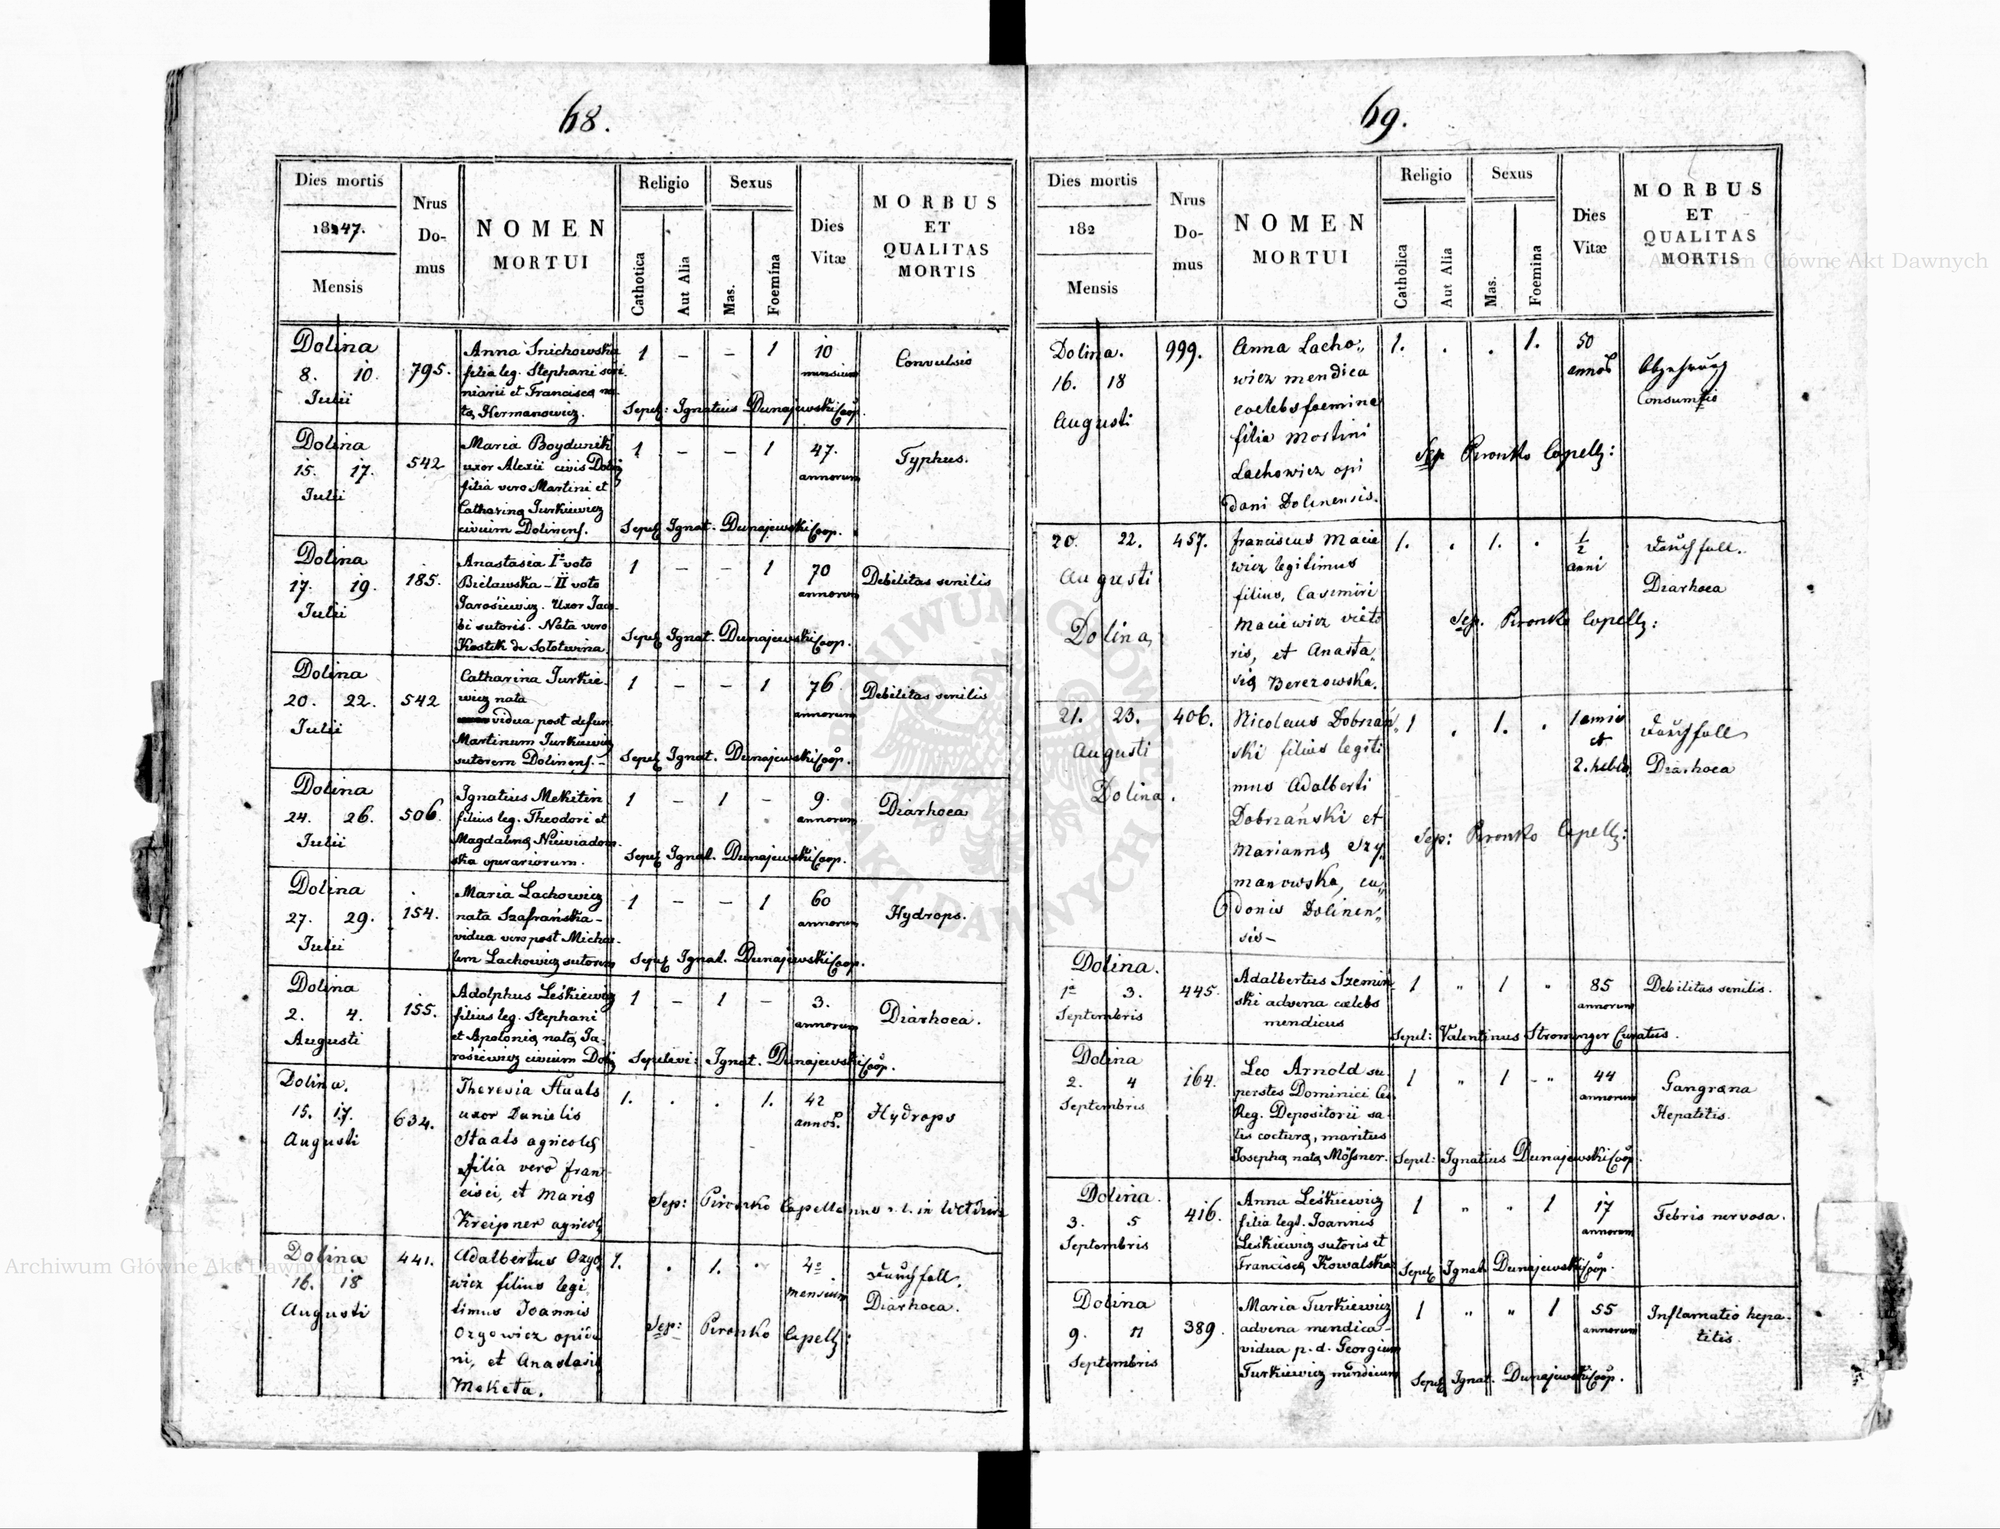 68.
Dies mortis
1847.
Mensis
Nrus
Do-
mus
NOMEN
MORTUI
Religio
Catholica
Aut Alia
Sexus
Mas.
Foemina
Dies
Vitæ
MORBUS
ET
QUALITAS
MORTIS
Dolina
8. 10.
Julii
795.
Anna Snichowska
filia leg. Stephani
niarii et Francisca na-
ta Hermanowicz.
1 – – 1
10
mensium
Convulsio
Sepel: Ignatius Dunajewski Coop.
Dolina
15. 17.
Julii
542
Maria Boydunik
uxor Alexii civis Dolin
filia vero Martini et
Catharina Jurkiewicz
civium Dolinens.
1 – – 1
47.
annorum
Typhus.
Sepel Ignat. Dunajewski Coop.
Dolina
17. 19.
Julii
185.
Anastasia I voto
Bielawska – II voto
Jarosiewicz. Uxor Jaco-
bi sutoris. Nata vero
Kostek de Sołotwina
1 – – 1
70
annorum
Debilitas senilis
Sepel Ignat. Dunajewski Coop.
Dolina
20. 22.
Julii
542
Catharina Jurkie-
wicz nata
vidua post defun
Martinum Jurkiewicz
sutorem Dolinens. –
1 – – 1
76
annorum
Debilitas senilis
Sepel Ignat. Dunajewski Coop.
Dolina
24. 26.
Julii
506.
Ignatius Mekitin
filius leg. Theodori et
Magdalena Niewiadom-
ska operariorum.
1 – 1 –
9.
annorum
Diarhoea
Sepel Ignat. Dunajewski Coop.
Dolina
27. 29.
Julii
154.
Maria Lachowicz
nata Szafrańska –
vidua vero post Micha-
lem Lachowicz sutorem
1 – – 1
60
annorum
Hydrops.
Sepel Ignat. Dunajewski Coop.
Dolina
2. 4.
Augusti
155.
Adolphus Leśkiewicz
filius leg. Stephani
et Apolonia nata Ja-
rosiewicz civium Dolin
1 – 1 –
3.
annorum
Diarhoea.
Sepelivi: Ignat. Dunajewski Coop.
Dolina.
15. 17.
Augusti
634.
Theresia Staals
uxor Danielis
Staals agricola
filia vero fran-
cisci, et Maria
Kreipner agricol
1. . . 1.
42
annor.
Hydrops
Sep: Pironko Capellanus r. l. in
Dolina
16. 18
Augusti
441.
Adalbertus Ozgo
wicz filius legi
timus Joannis
Ozgowicz opida
ni, et Anastasia
Meketa.
1. . 1. .
4
mensium
Diarhoea.
Sep: Pironko Capell:
69.
Dies mortis
182
Mensis
Nrus
Do-
mus
NOMEN
MORTUI
Religio
Catholica
Aut Alia
Sexus
Mas.
Foemina
Dies
Vitæ
MORBUS
ET
QUALITAS
MORTIS
Dolina.
16. 18
Augusti
999.
Anna Lacho„
wicz mendica
coelebs foemina
filia Mostini
Lachowicz opi
dani Dolinensis.
1. . . 1.
50
annor
Consumtio
Sep Pironko Capell:
20. 22.
Augusti
Dolina
457.
franciscus Macie
wicz legitimus
filius, Casimiri
Maciewicz vieto
ris, et Anasta„
sia Berezowska.
1. . 1. .
1/2
anni
Diarhoea
Sep. Pironko Capell:
21. 23.
Augusti
Dolina.
406.
Nicolaus Dobrzań„
ski filius legiti
mus Adalberti
Dobrzański et
Marianna Szy„
manowska,
Dolinen„
sis –
1 . 1. .
1 anni
et
2. hebd
Diarhoea
Sep: Pironko Capell:
Dolina.
1 3.
Septembris
445.
Adalbertus Szemin
ski advena cælebs
mendicus
1 " 1 "
85
annorum
Debilitas senilis.
Sepel: Valentinus Strominger Curatus.
Dolina
2. 4
Septembris
164.
Leo Arnold su-
perstes Dominici
Reg. Depositorii sa-
lis coctura, maritus
Josepha nata Mössner.
1 " 1 "
44
annorum
Gangrana
Hepatitis.
Sepel: Ignatius Dunajewski Coop.
Dolina.
3. 5
Septembris
416.
Anna Leśkiewicz
filia legt. Joannis
Leśkiewicz sutoris et
Francisca Kowalska
1 " " 1
17
annorum
Febris nervosa.
Sepel Ignat. Dunajewski Coop.
Dolina
9. 11
Septembris
389.
Maria Turkiewicz
advena mendica –
vidua p. d. Georgium
Turkiewicz mendicum
1 " " 1
55
annorum
Inflamatio hepa-
titis.
Sepel Ignat. Dunajewski Coop.
Archiwum Główne Akt Dawnych
Archiwum Główne Akt Dawnych
ARCHIWUM GŁÓWNE
AKT DAWNYCH